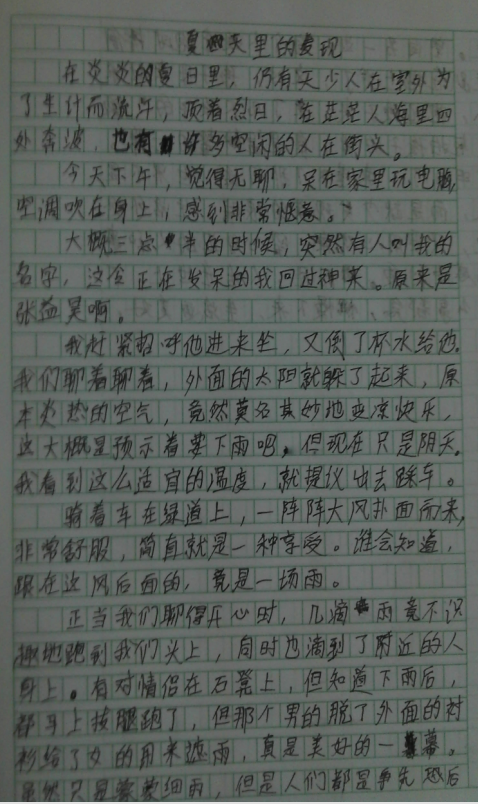 夏天里的发现
在炎炎的夏日里，仍有不少人在室外为
了生计而流汗，顶着烈日，在茫茫人海里四
处奔波，也有许多空闲的人在街头。
今天下午，觉得无聊，呆在家里玩电脑
空调吹在身上，感到非常惬意。
大概三点半的时候，突然有人叫我的
名字，这令正在发呆的我回过神来。原来是
张益昊啊。
我赶紧招呼他进来坐，又倒了杯水给他。
我们聊着聊着，外面的太阳就躲了起来，原
本炎热的空气，竟然莫名其妙地变凉快乐，
这大概是预示着要下雨吧，但现在只是阴天。
我看到这么适宜的温度，就提议出去踩车。
骑着车在绿道上，一阵阵大风扑面而来，
非常舒服，简直就是一种享受。谁会知道，
跟在这风后面的，竟是一场雨。
正当我们聊得开心时，几滴雨竟不识
趣地跑到我们头上，同时也滴到了附近的人
身上。有对情侣在石凳上，但知道下雨后，
都马上拔腿跑了，但那个男的脱了外面的衬
衫给了女的用来遮雨，真是美好的一幕。
虽然只是蒙蒙细雨，但是人们都是争先恐后